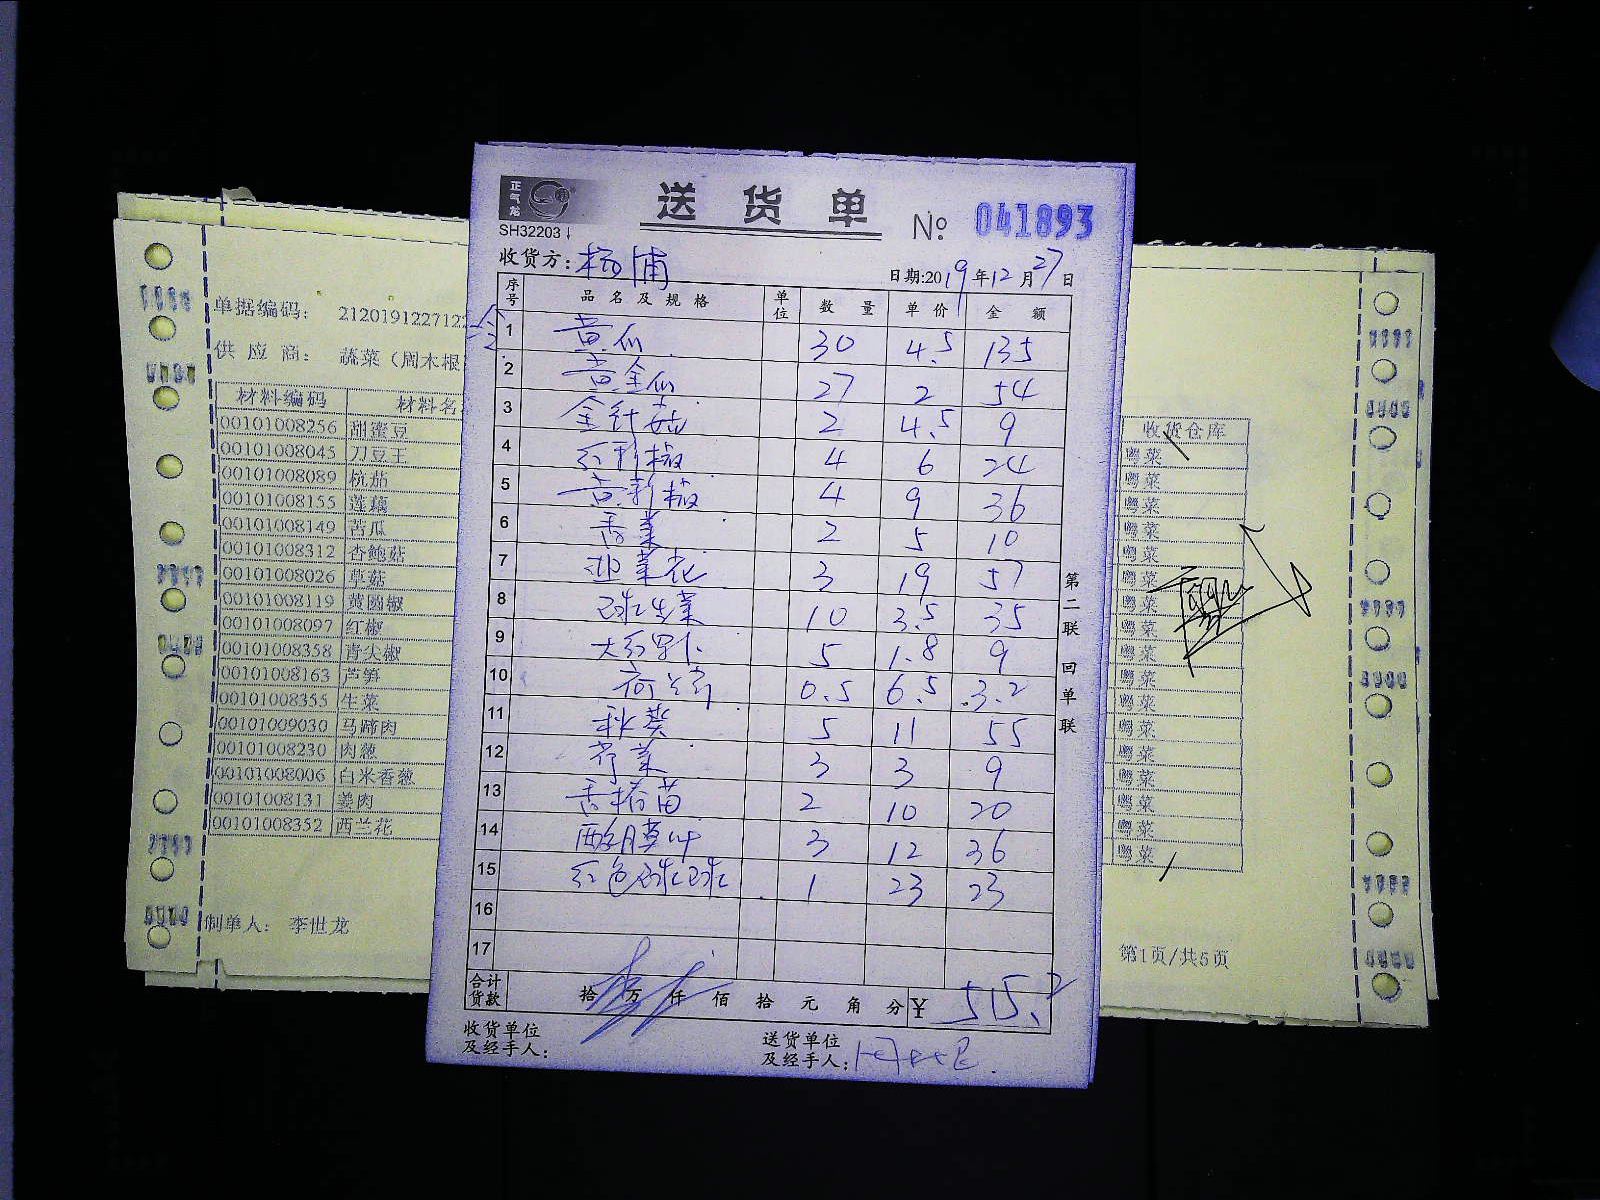 正气龙
SH32203
送货单
№ 041893
收货方：杨浦
日期:2019年12月27日
序号 品名及规格 单位 数量 单价 金额
1 黄瓜 30 4.5 135
2 黄金瓜 27 2 54
3 金针菇 2 4.5 9
4 红彩椒 4 6 24
5 黄彩椒 4 9 36
6 香菜 2 5 10
7 韭菜花 3 19 57
8 球生菜 10 3.5 35
9 大红萝卜 5 1.8 9
10 0.5 6.5 3.2
11 秋葵 5 11 55
12 芹菜 3 3 9
13 2 10 20
14 3 12 36
15 1 23 23
16
17
合计货款 拾万仟佰拾元角分 ¥ 515.2
收货单位及经手人：
送货单位及经手人：
第二联 回单联
单据编码： 2120191227122
供应商： 蔬菜（周木根
材料编码 材料名
00101008256 甜蜜豆
00101008045 刀豆王
00101008089 杭茄
00101008155 莲藕
00101008149 苦瓜
00101008312 杏鲍菇
00101008026 草菇
00101008119 黄圆椒
00101008097 红椒
00101008358 青尖椒
00101008163 芦笋
00101008355 生菜
00101009030 马蹄肉
00101008230 肉葱
00101008006 白米香葱
00101008131 姜肉
00101008352 西兰花
制单人： 李世龙
收货仓库
粤菜
粤菜
粤菜
粤菜
粤菜
粤菜
粤菜
粤菜
粤菜
粤菜
粤菜
粤菜
粤菜
粤菜
粤菜
粤菜
粤菜
第1页/共5页